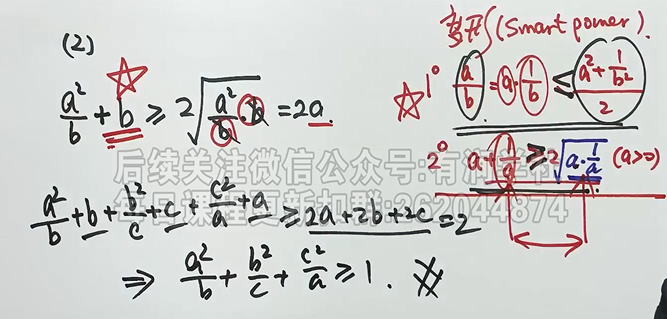 (2)
a²/b + b ≥ 2√(a²/b · b) = 2a.
a²/b + b + b²/c + c + c²/a + a ≥ 2a+2b+2c = 2
⇒ a²/b + b²/c + c²/a ≥ 1.
(Smart power).
☆ 1° a/b = a · 1/b ≤ (a² + 1/b²)/2
2° a + 1/a ≥ 2√(a · 1/a) (a>0)
后续关注微信公众号:有
每日课程更新扣群:262044874